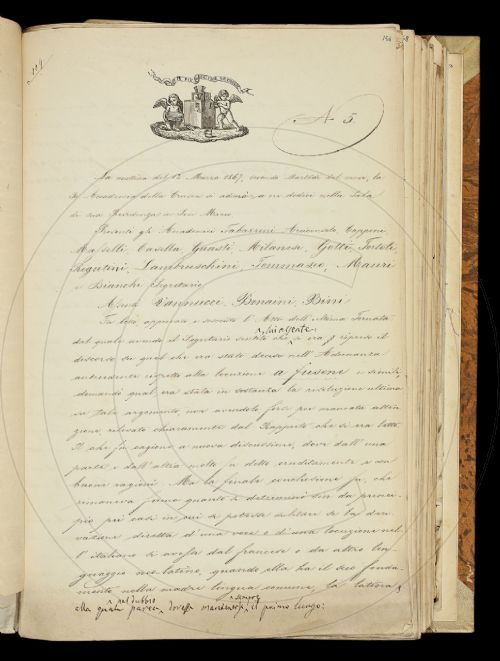 IL PIÙ BEL FIOR NE COGLIE
A 5
La mattina del 12 Marzo 1867, secondo Martedì del mese, la
R. Accademia della Crusca si adunò a ore dodici nella Sala
di sua Residenza a San Marco.
Presenti gli Accademici Tabarrini Arciconsolo, Capponi
Maselli, Casella, Guasti, Milanesi, Gotti, Tortoli
Rigutini, Lambruschini, Tommaseo, Mauri
e Bianchi Segretario.
Assenti Vannucci Bonaini, Bini
Fu letto, approvato e soscritto l'Atto dell'ultima Tornata
dal quale avendo il Segretario sentito che si era ripreso il
discorso su quel che era stato deciso nell'Adunanza
antecedente rispetto alla locuzione a fusone e simili,
domandò qual era stata in sostanza la risoluzione ultima
su tale argomento, non avendolo forse per mancata atten-
zione rilevato chiaramente dal Rapporto che si era letto.
Il che fu cagione a nuova discussione, dove dall'una
parte e dall'altra molto fu detto eruditamente e con
buone ragioni. Ma la finale conclusione fu, che
rimaneva fermo quanto si determinò fin da princi-
pio pei casi in cui si potesse dubitare se la deri-
vazione diretta d'una voce o d'una locuzione nel-
l'italiano si avesse dal francese o da altro lin-
guaggio neo latino, quando ella ha il suo fonda-
mento nella madre lingua comune, la latina;
alla quale nel dubbio parea dovesse mantenersi sempre il primo luogo: